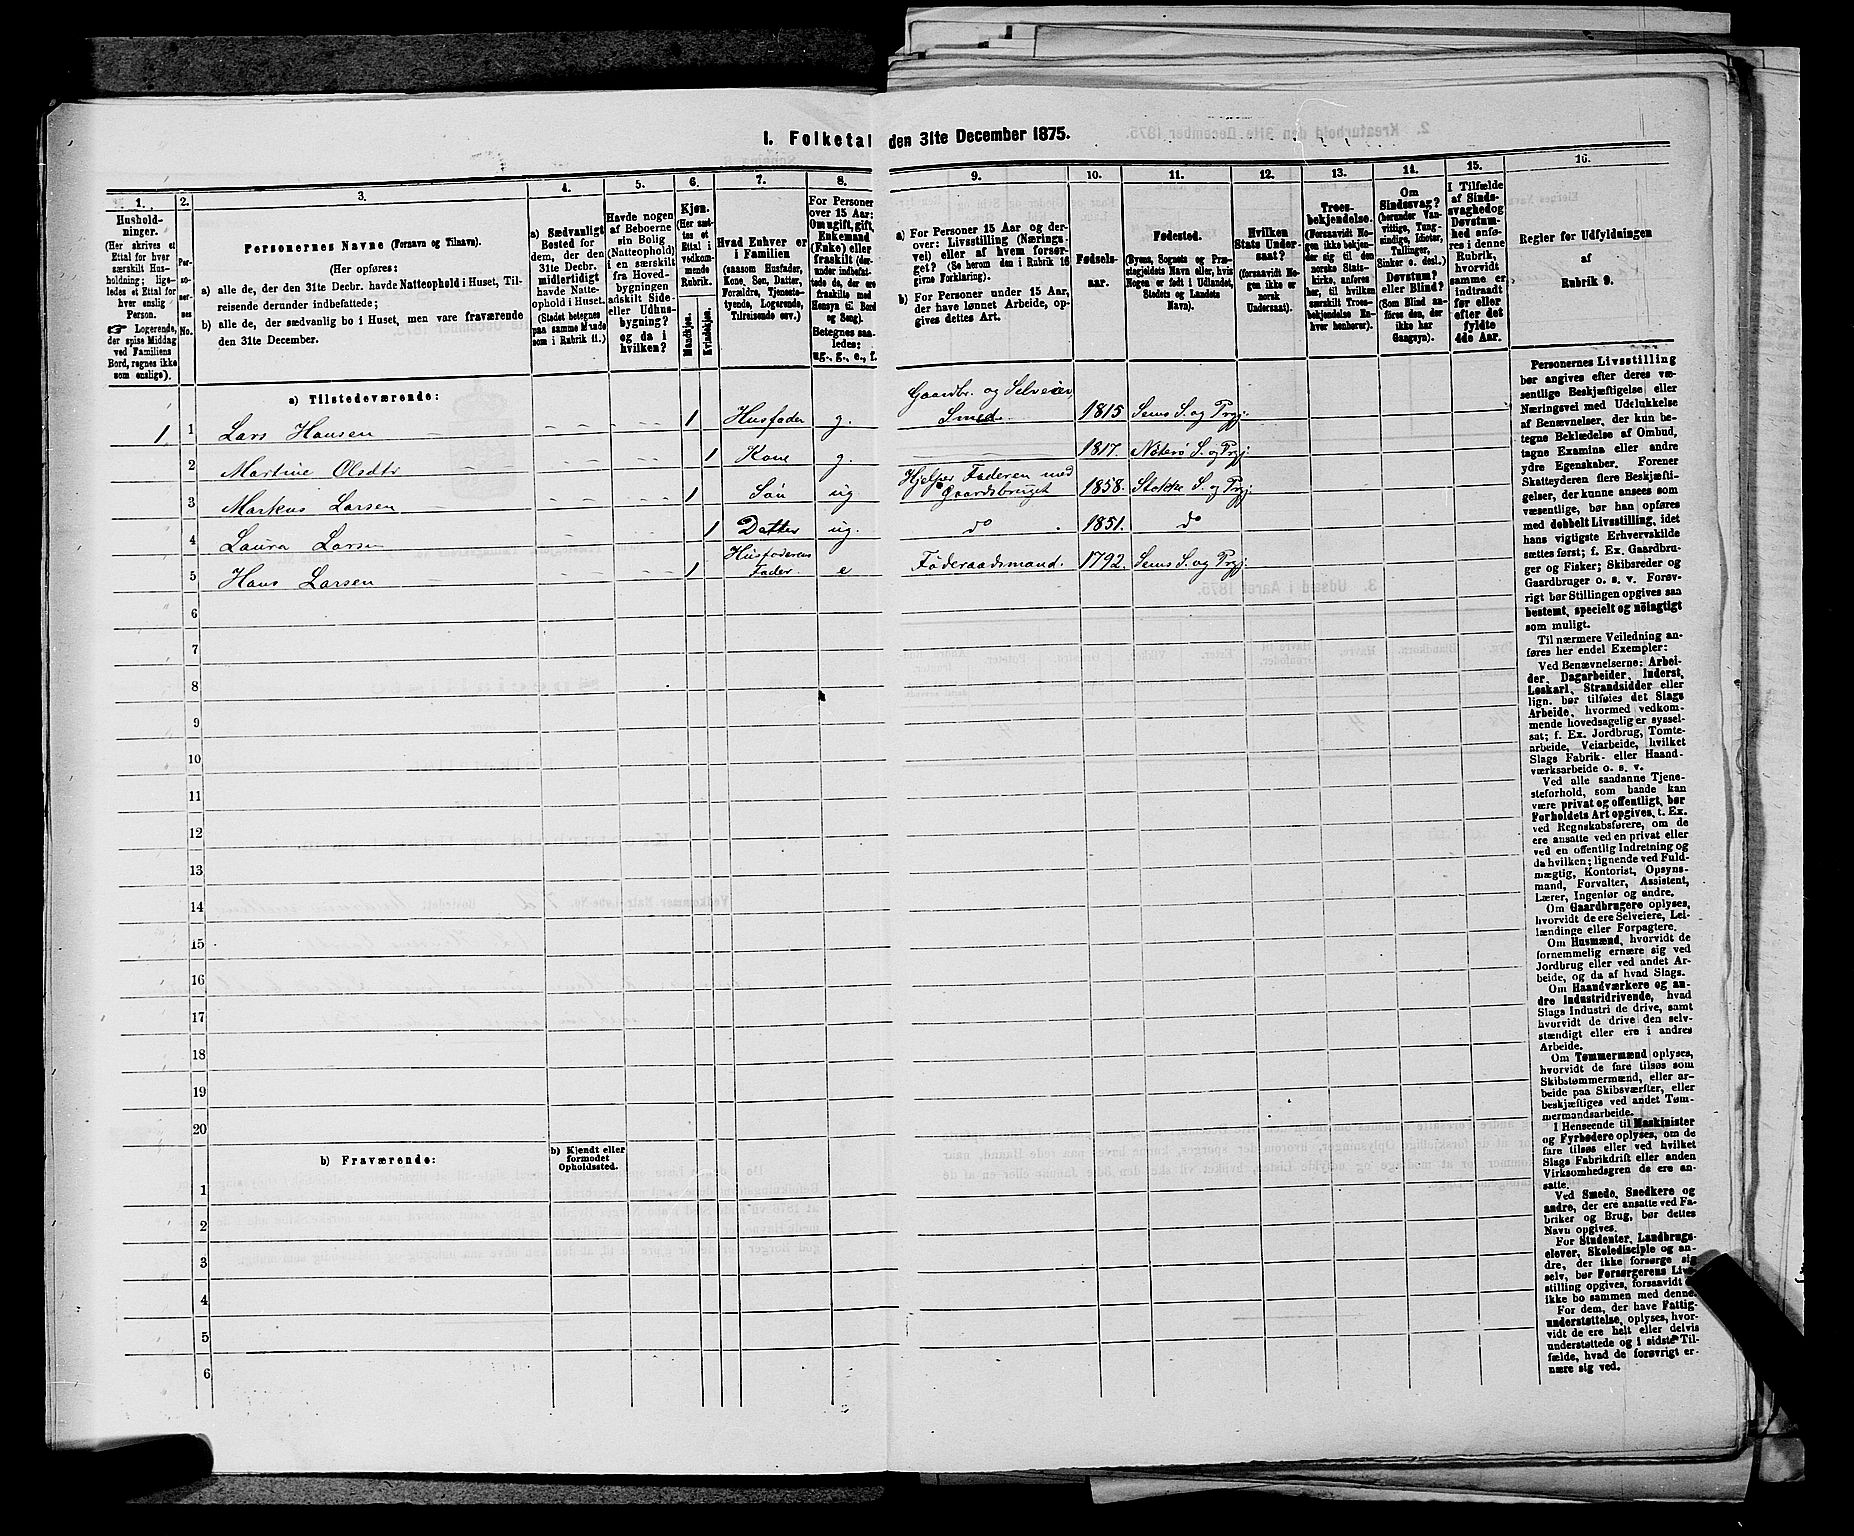 1. Folketal den 31te December 1875.
1. 2. 3. 4. 5. 6. 7. 8. 9. 10. 11. 12. 13. 14. 15. 16.
Hushold-
ninger.
(Her skrives et
Ettal for hver
særskilt Hus-
holdning; lige-
ledes et Ettal for
hver enslig
Person.
☞ Logerende,
der spise Middag
ved Familiens
Bord, regnes ikke
som enslige).
Per-
so-
ner-
nes
No.
Personernes Navne (Fornavn og Tilnavn).
(Her opføres:
a) alle de, der den 31te Decbr. havde Natteophold i Huset, Til-
reisende derunder indbefattede;
b) alle de, der sædvanlig bo i Huset, men vare fraværende
den 31te December.
a) Sædvanligt
Bosted for
dem, der den
31te Decbr.
midlertidigt
havde Natte-
ophold i Huset.
(Stedet betegnes
paa samme Maade
som i Rubrik 11.)
Havde nogen
af Beboerne
sin Bolig
(Natteophold)
i en særskilt
fra Hoved-
bygningen
adskilt Side-
eller Udhus-
bygning?
og da i
hvilken?
Kjøn.
(Her sæt-
tes et
Ettal i
vedkom-
mende
Rubrik.
Mandkjøn.
Kvindekjøn.
Hvad Enhver er
i Familien
(saasom Husfader,
Kone, Søn, Datter,
Forældre, Tjeneste-
tyende, Logerende,
Tilreisende osv.)
For Personer
over 15 Aar:
Om ugift, gift,
Enkemand
(Enke) eller
fraskilt (der-
under indbefat-
tede de, der ere
fraskilte med
Hensyn til Bord
og Seng).
Betegnes saa-
ledes:
ug., g., e., f.
a) For Personer 15 Aar og der-
over: Livsstilling (Nærings-
vei) eller af hvem forsør-
get? (Se herom den i Rubrik 16
givne Forklaring).
b) For Personer under 15 Aar,
der have lønnet Arbeide, op-
gives dettes Art.
Fødsels-
aar.
Fødested.
(Byens, Sognets og Præ-
stegjeldets Navn, eller, hvis
Nogen er født i Udlandet,
Stedets og Landets
Navn).
Hvilken
Stats Under-
saat?
(forsaavidt No-
gen ikke er
norsk
Undersaat).
Troes-
bekjendelse.
(Forsaavidt No-
gen ikke bekjen-
der sig til den
norske Stats-
kirke, anføres
her, til hvilken
særskilt Troes-
bekjendelse En-
hver henhører).
Om
Sindssvag?
(herunder Van-
vittige, Tung-
sindige, Idioter,
Tullinger,
Sinker o. desl.)
Døvstum?
eller Blind?
(Som Blind an-
føres den, der
ikke har
Gangsyn).
I Tilfælde
af Sinds-
svaghed og
Døvstum-
hed anfø-
res i denne
Rubrik,
hvorvidt
samme er
indtraadt
før eller
efter det
fyldte
4de Aar.
Regler for Udfyldningen
af
Rubrik 9.
a) Tilstedeværende:
1 1 Lars Hansen 1 Husfader g. Gaardbr. og Selveier, Smed. 1815 Sems S. og Prgj.
2 Martine Olsdtr 1 Kone g. 1817. Nøterø S. og Prgj.
3 Markus Larsen 1 Søn ug Hjelper Faderen med Gaardsbruget 1858. Stokke S. og Prgj.
4 Laura Larsen 1 Datter ug. do 1851. do
5 Hans Larsen 1 Husfaderens Fader. e Føderaadsmand. 1792. Sems S. og Prgj.
6
7
8
9
10
11
12
13
14
15
16
17
18
19
20
b) Fraværende:
b) Kjendt eller
formodet
Opholdssted.
1
2
3
4
5
6
Personernes Livsstilling
bør angives efter deres væ-
sentlige Beskjæftigelse eller
Næringsvei med Udelukkelse
af Benævnelser, der kun be-
tegne Beklædelse af Ombud,
tagne Examina eller andre
ydre Egenskaber. Forener
Skatteyderen flere Beskjæfti-
gelser, der kunne ansees som
væsentlige, bør han opføres
med dobbelt Livsstilling, idet
hans vigtigste Erhvervskilde
sættes først; f. Ex. Gaardbru-
ger og Fisker; Skibsreder og
Gaardbruger o. s. v. Forøv-
rigt bør Stillingen opgives saa
bestemt, specielt og nöiagtigt
som muligt.
Til nærmere Veiledning an-
føres her endel Exempler:
Ved Benævnelserne: Arbei-
der, Dagarbeider, Inderst,
Løskarl, Strandsidder eller
lign. bør tilføies det Slags
Arbeide, hvormed vedkom-
mende hovedsagelig er syssel-
sat; f. Ex. Jordbrug, Tomte-
arbeide, Veiarbeide, hvilket
Slags Fabrik- eller Haand-
værksarbeide o. s. v.
Ved alle saadanne Tjene-
steforhold, som baade kan
være privat og offentligt, bør
Forholdets Art opgives, t. Ex.
ved Regnskabsførere, om de
ere ansatte ved en privat eller
ved en offentlig Indretning og
da hvilken; lignende ved Fuld-
mægtig, Kontorist, Opsyns-
mand, Forvalter, Assistent,
Lærer, Ingeniør og andre.
Om Gaardbrugere oplyses,
hvorvidt de ere Selveiere, Lei-
lændinge eller Forpagtere.
Om Husmænd, hvorvidt de
fornemmelig ernære sig ved
Jordbrug eller ved andet Ar-
beide, og da af hvad Slags.
Om Haandværkere og an-
dre Industridrivende, hvad
Slags Industri de drive, samt
hvorvidt de drive den selv-
stændigt eller ere i andres
Arbeide.
Om Tømmermænd oplyses,
hvorvidt de fare tilsøs som
Skibstømmermænd, eller ar-
beide paa Skibsværfter, eller
beskjæftiges ved andet Tøm-
mermandsarbeide.
I Henseende til Maskinister
og Fyrbødere oplyses, om de
fare tilsøs eller ved hvilket
Slags Fabrikdrift eller anden
Virksomhedsgren de ere an-
satte.
Ved Smede, Snedkere og
andre, der ere ansatte ved Fa-
briker og Brug, bør dettes
Navn opgives.
For Studenter, Landbrugs-
elever, Skoledisciple og an-
dre, der ikke forsørge sig
selv, bør Forsørgerens Livs-
stilling opgives, forsaavidt de
ikke bo sammen med denne.
For dem, der have Fattig-
understøttelse, oplyses, hvor-
vidt de ere helt eller delvis
understøttede og i sidste Til-
fælde, hvad de forøvrigt er-
nære sig ved.